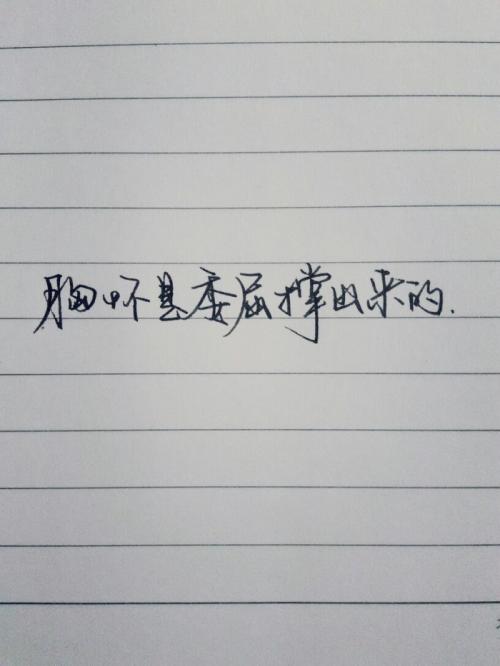 胸怀是委屈撑出来的.